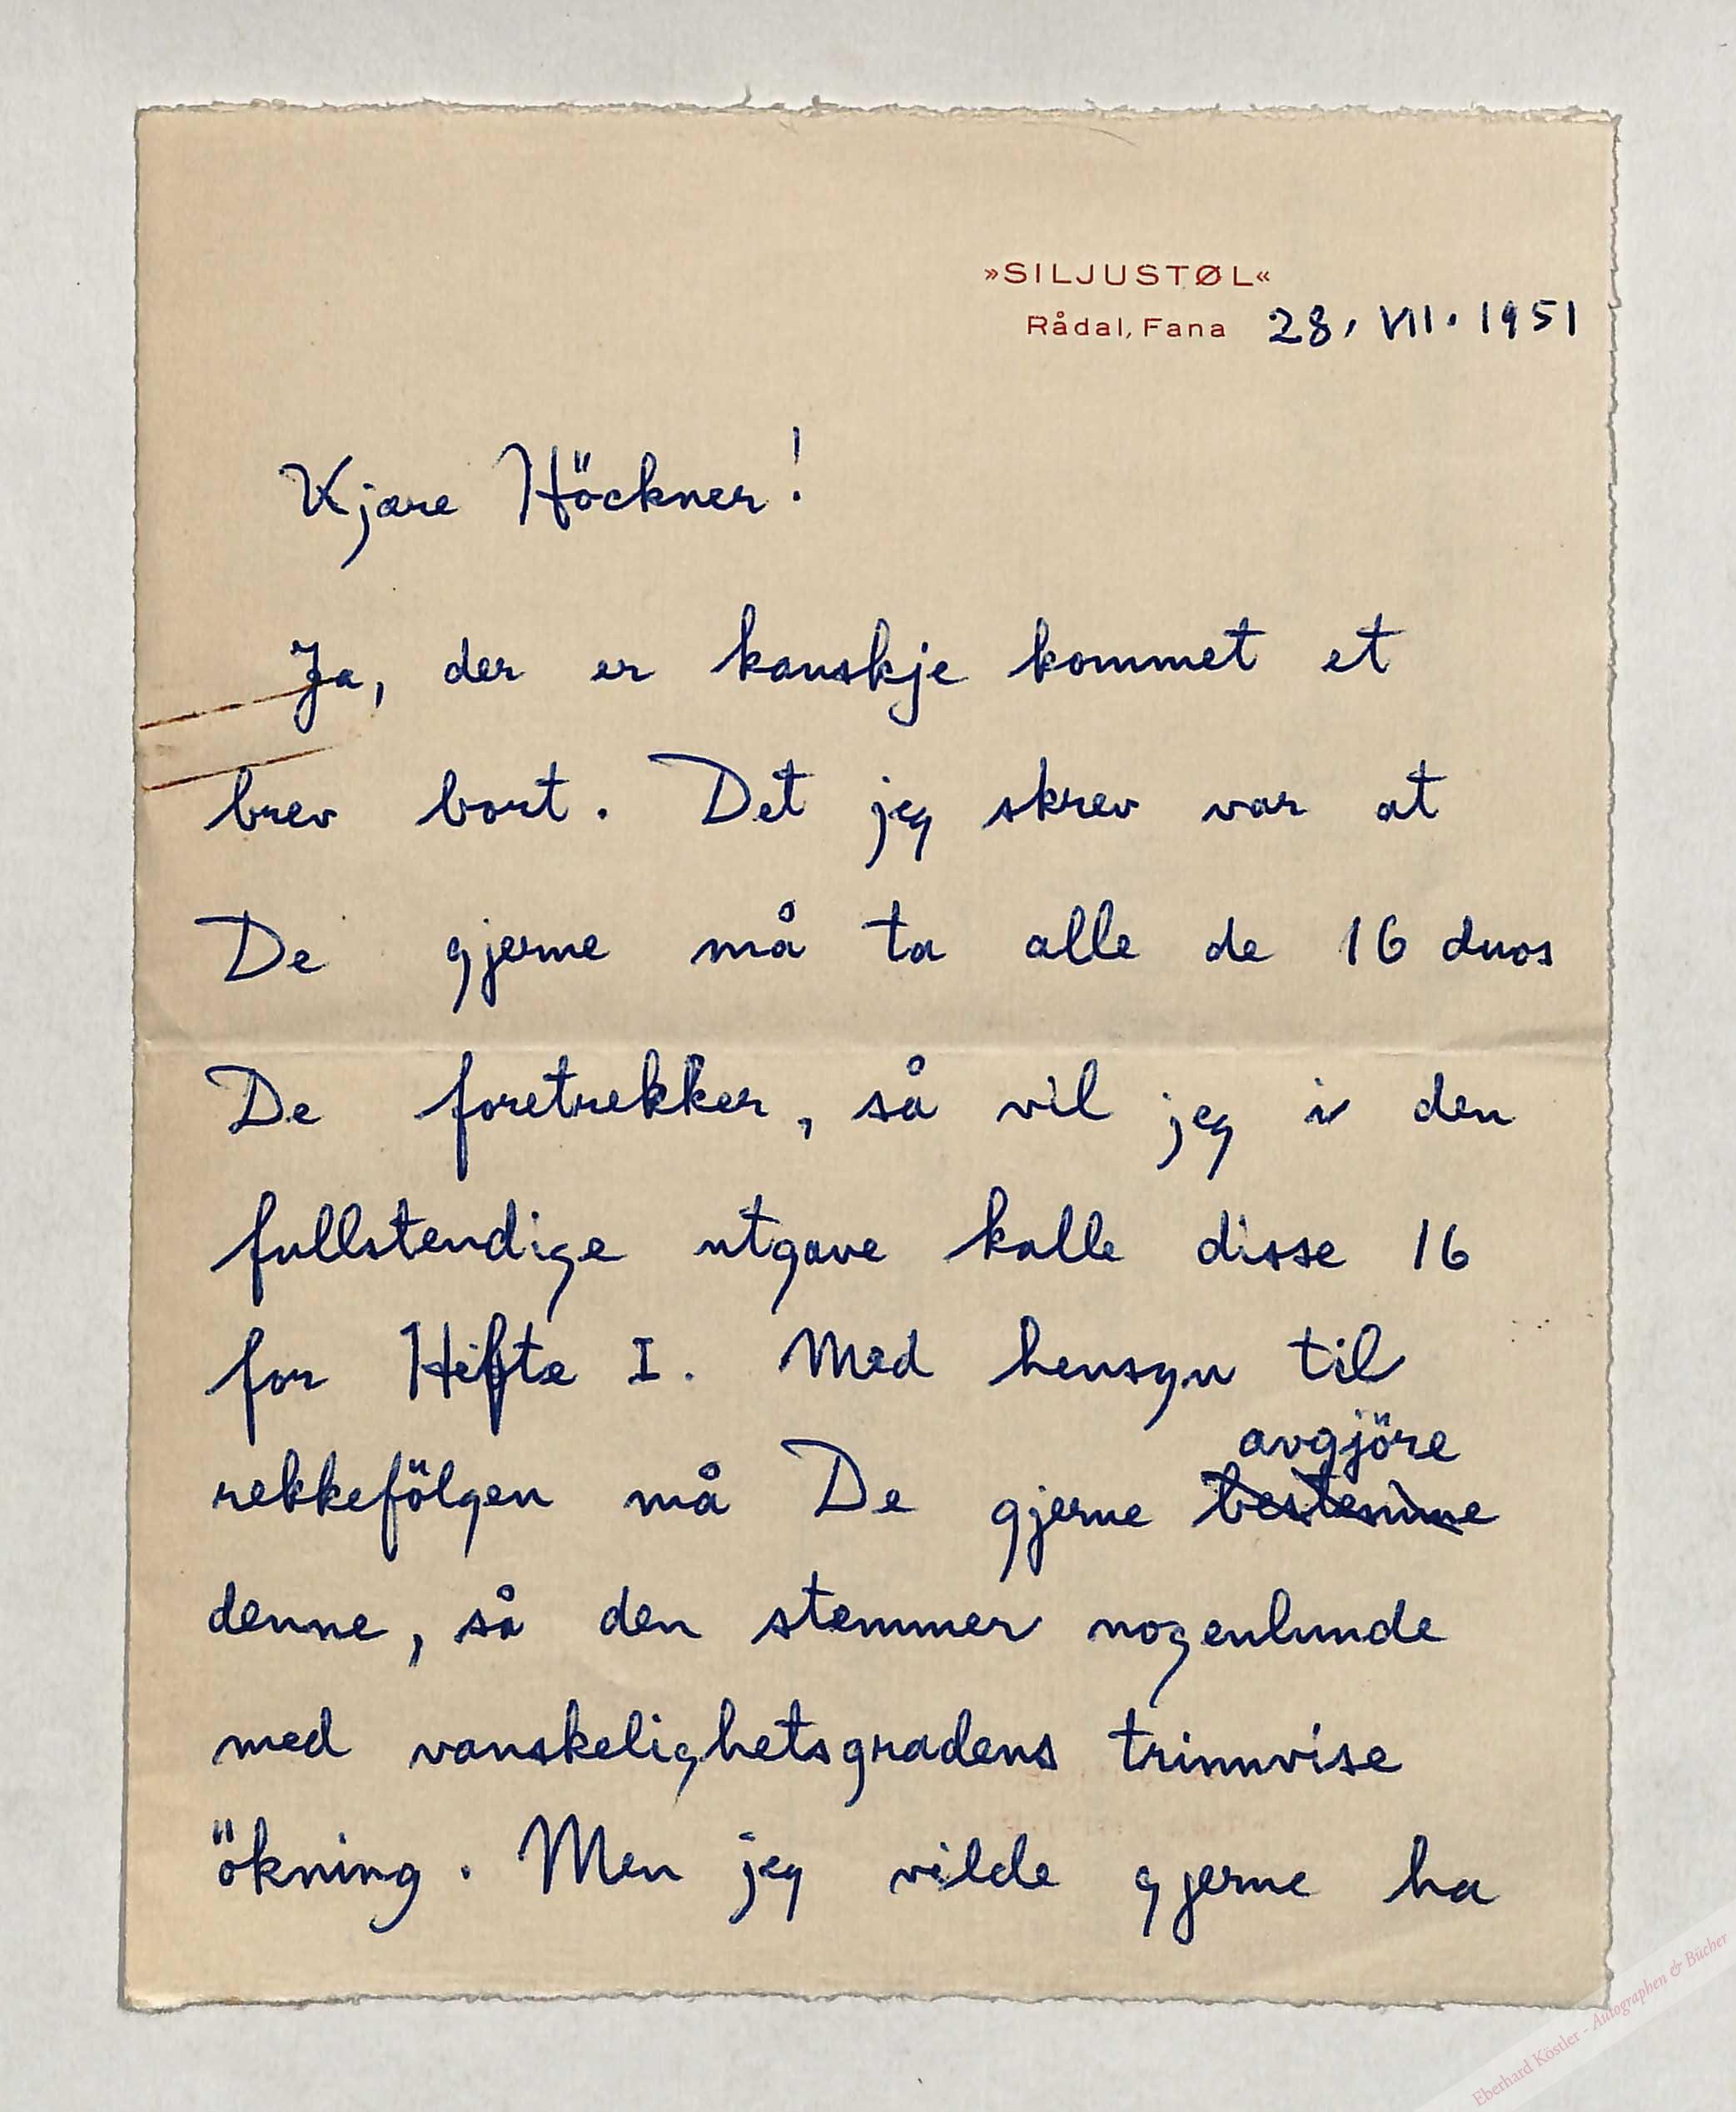 »SILJUSTØL«
Rådal, Fana 28. VII. 1951
Kjære Höckner!
Ja, der er kanskje kommet et
brev bort. Det jeg skrev var at
De gjerne må ta alle de 16 duos
De foretrekker, så vil jeg i den
fullstendige utgave kalle disse 16
for Hefte I. Med hensyn til
avgjöre
rekkefölgen må De gjerne bestemme
denne, så den stemmer nogenlunde
med vanskelighetsgradens trinnvise
ökning. Men jeg vilde gjerne ha
Eberhard Köstler - Autographen & Bücher